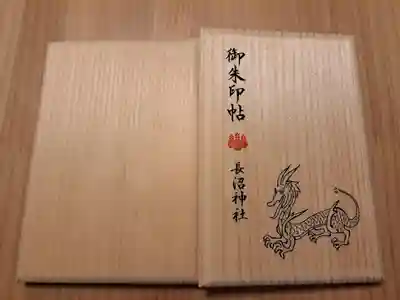 御朱印帖
長沼神社